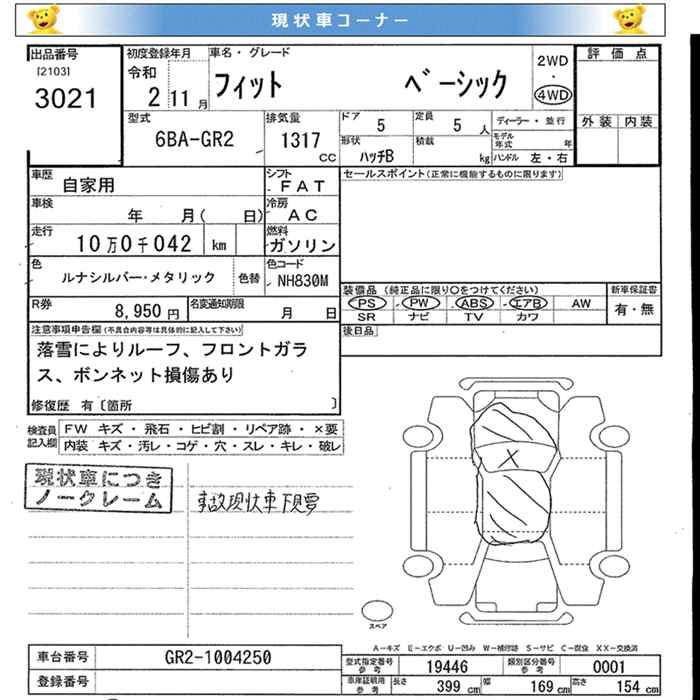 現状車コーナー
出品番号
[2103]
3021
初度登録年月
令和
2 11月
車名・グレード
フィット ベーシック
2WD
・
4WD
評価点
外装 内装
型式
6BA-GR2
排気量
1317
cc
ドア
5
定員
5人
ディーラー・並行
形状
ハッチB
積載
kg
モデル年式 年
ハンドル 左・右
車歴
自家用
シフト
FAT
セールスポイント(正常に機能するものに限ります)
車検
年 月( 日)
冷房
AC
走行
10万0千042 km
燃料
ガソリン
色
ルナシルバー・メタリック
色替
色コード
NH830M
装備品(純正品に限り○をつけてください)
PS PW ABS エアB AW
SR ナビ TV カワ
新車保証書
有・無
R券
8,950円
名変通知期限
月 日
後日品
注意事項申告欄(不具合内容等は具体的に記入して下さい)
落雪によりルーフ、フロントガラ
ス、ボンネット損傷あり
修復歴 有〔箇所 〕
検査員
記入欄
FW キズ・飛石・ヒビ割・リペア跡・×要
内装 キズ・汚レ・コゲ・穴・スレ・キレ・破レ
現状車につき
ノークレーム
事故現状車下見要
X
スペア
A-キズ E-エクボ U-凹み W-補修跡 S-サビ C-腐食 XX-交換済
車台番号
GR2-1004250
登録番号
型式指定番号
参考
19446
類別区分番号
参考
0001
車庫証明用
参考
長さ
399 cm
幅
169 cm
高さ
154 cm